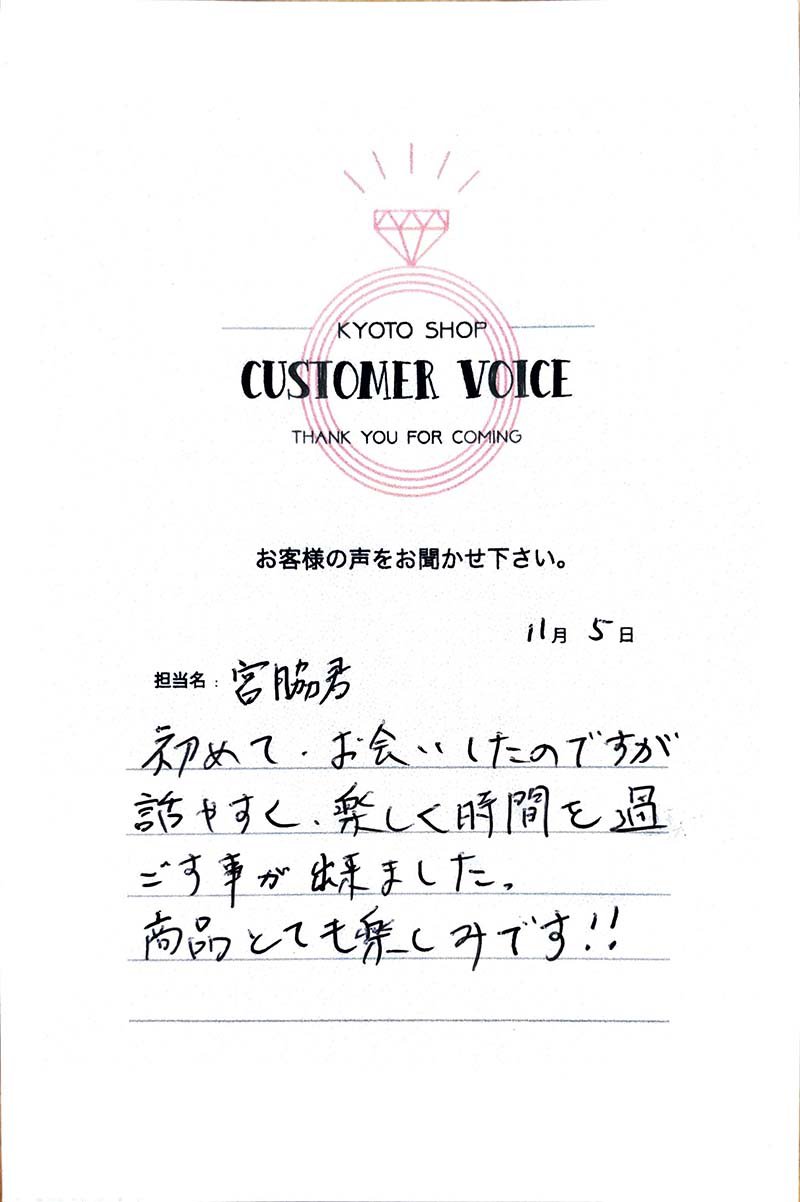 KYOTO SHOP
CUSTOMER VOICE
THANK YOU FOR COMING
お客様の声をお聞かせ下さい。
11月 5日
担当名：宮脇君
初めて、お会いしたのですが
話やすく、楽しく時間を過
ごす事が出来ました。
商品とても楽しみです!!